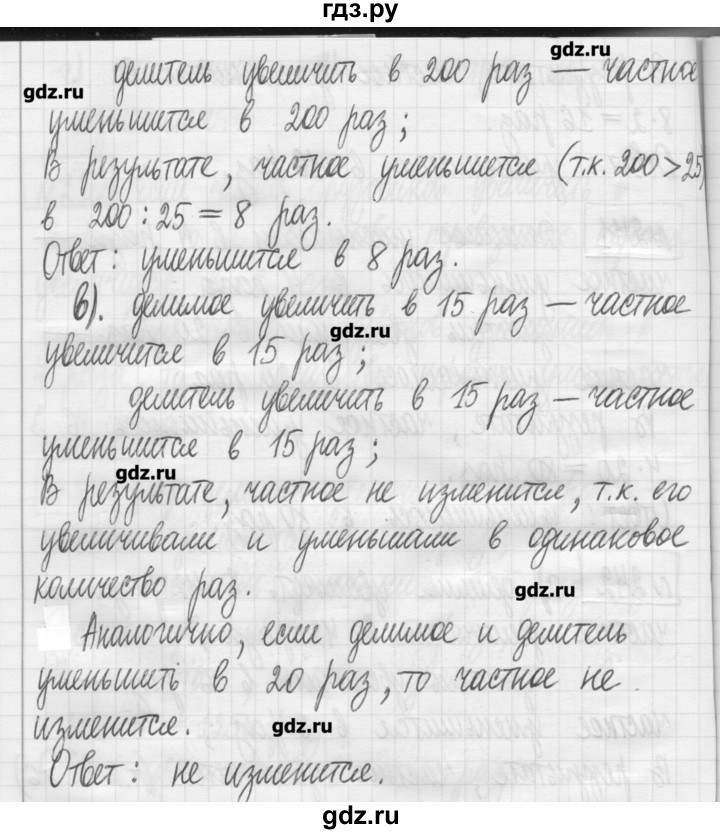 гдз.ру
gdz.ru
делитель увеличить в 200 раз — частное
gdz.ru
уменьшится в 200 раз;
В результате, частное уменьшится (т.к. 200>25)
в 200:25=8 раз.
Ответ: уменьшится в 8 раз.
в). делимое увеличить в 15 раз — частное
gdz.ru
увеличится в 15 раз;
делитель увеличить в 15 раз — частное
уменьшится в 15 раз;
gdz.ru
В результате, частное не изменится, т.к. его
увеличивали и уменьшали в одинаковое
количество раз.
gdz.ru
Аналогично, если делимое и делитель
уменьшить в 20 раз, то частное не
изменится.
gdz.ru
Ответ: не изменится.
gdz.ru